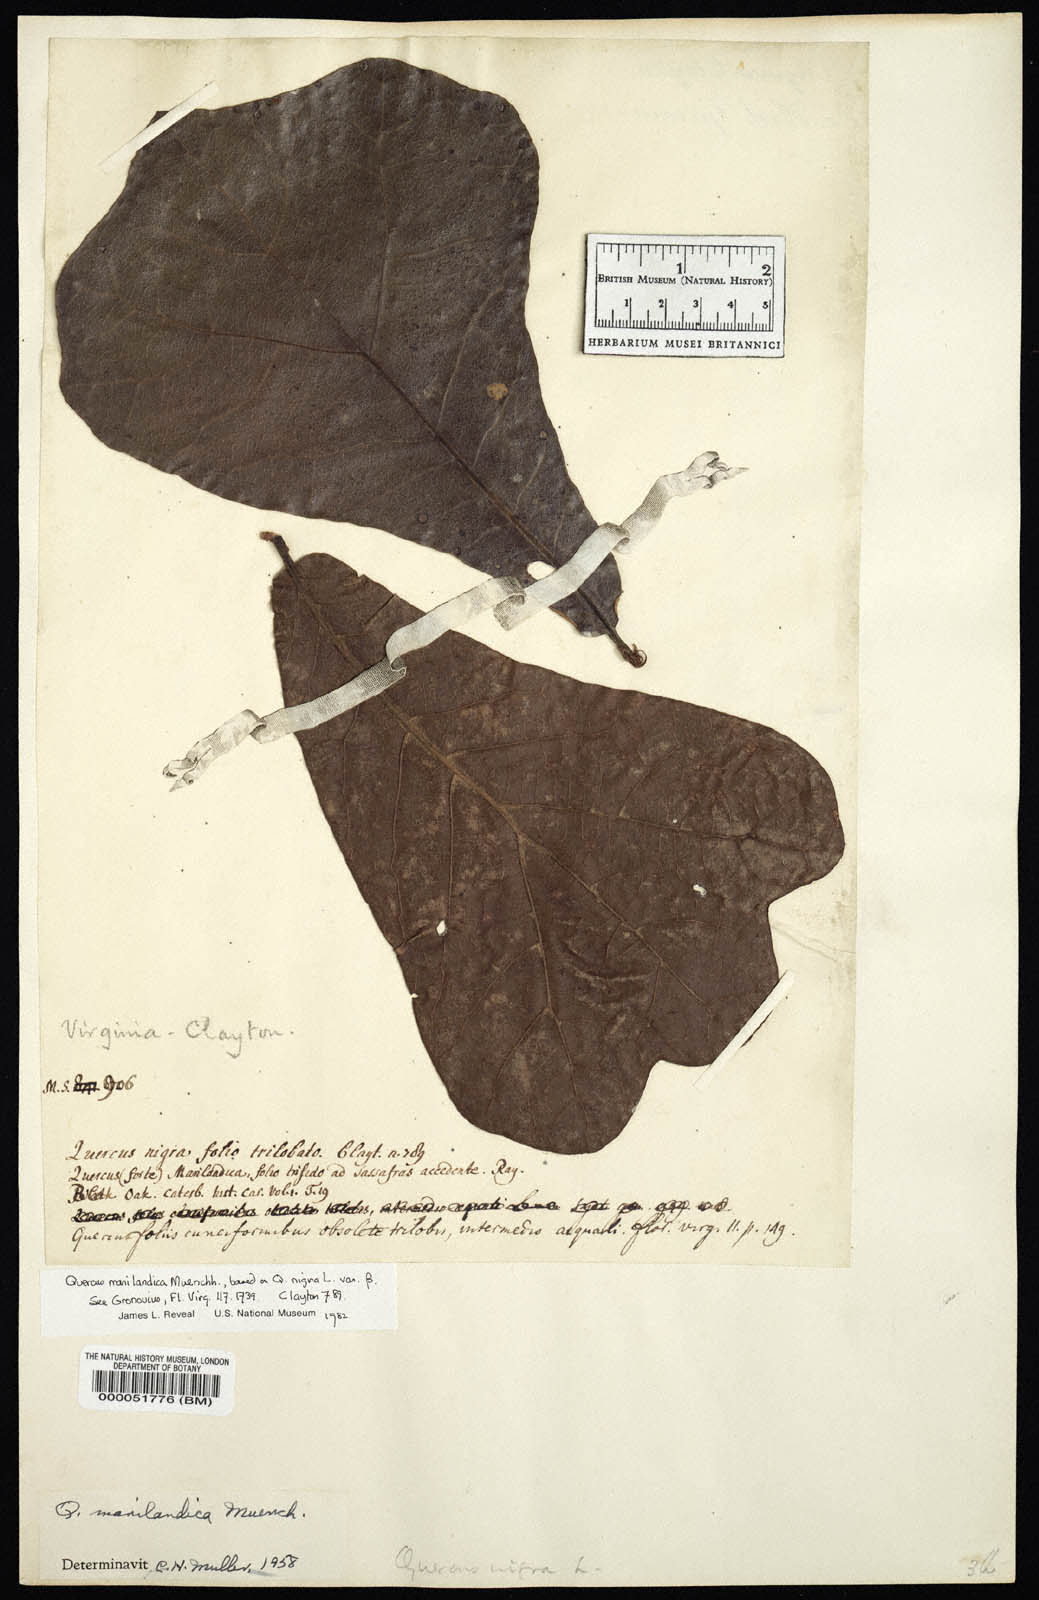 1 2
BRITISH MUSEUM (NATURAL HISTORY)
1 2 3 4 5
HERBARIUM MUSEI BRITANNICI
Virginia - Clayton.
M. S. 906
Quercus nigra, folio trilobato. Clayt. n. 789
Quercus (forte) Marilandica, folio trifido ad sassafras accedente. Ray.
Black Oak. Catesb. hist. Car. Vol. 1. T. 19
Quercus foliis cuneiformibus obsolete trilobis, intermedio aequali. flor. virg. II. p. 149.
Quercus marilandica Muenchh., based on Q. nigra L. var. β.
See Gronovius, Fl. Virg. 117. 1739. Clayton 789.
James L. Reveal U.S. National Museum 1982
THE NATURAL HISTORY MUSEUM, LONDON
DEPARTMENT OF BOTANY
000051776 (BM)
Q. marilandica Muench.
Determinavit C. H. Muller, 1958
Quercus nigra L.